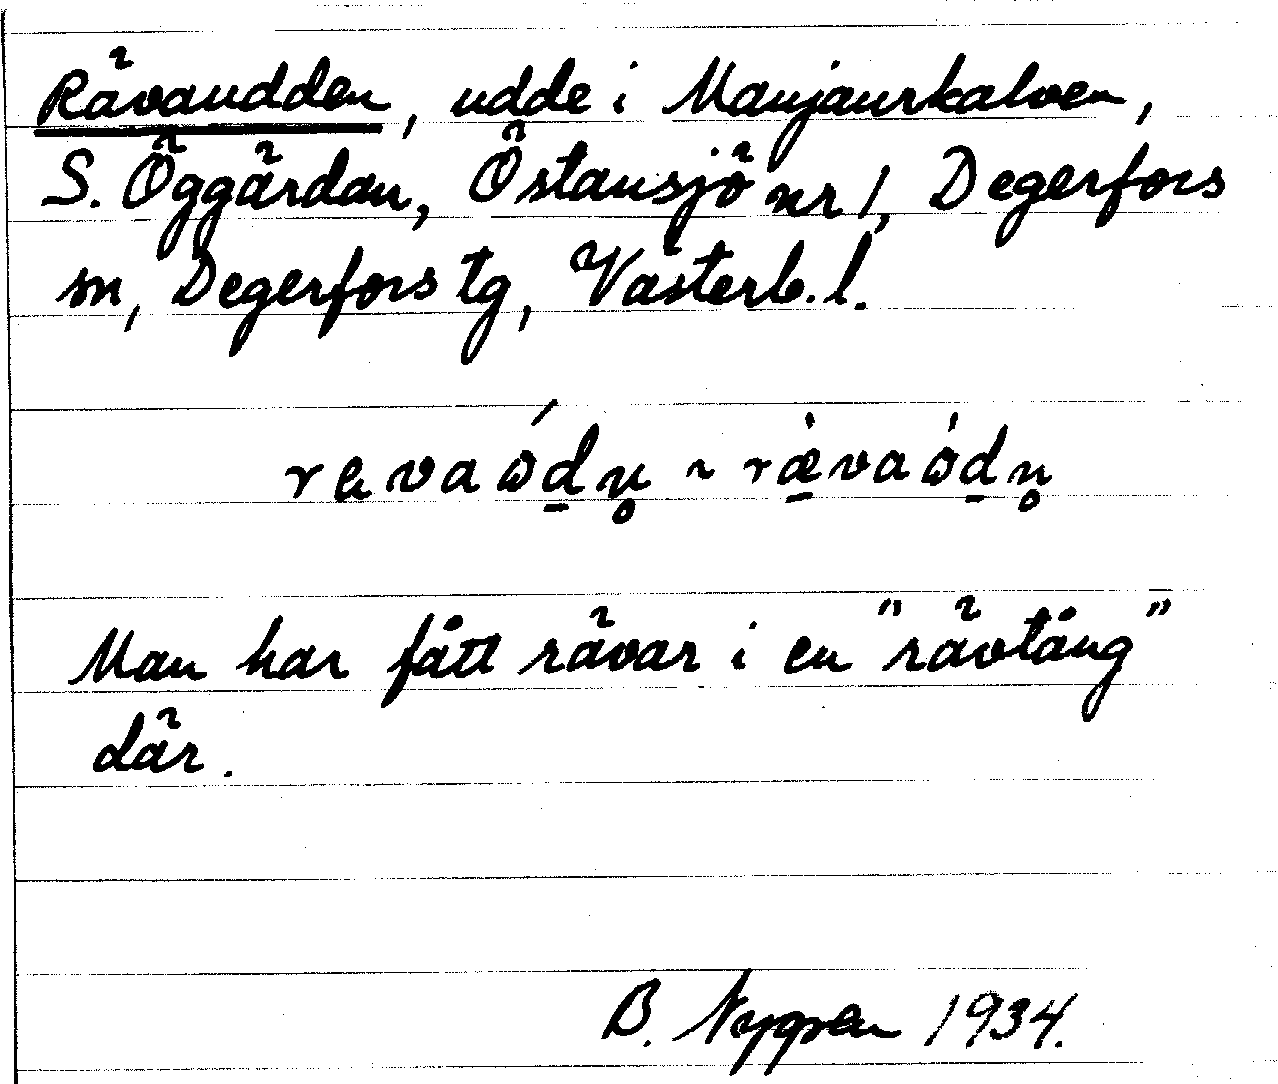 Rävaudden, udde i Manjaurkalven,
S. Öggärdan, Östansjö nr 1, Degerfors
sn, Degerfors tg, Västerb. l.
ravaǿdn̥ ~ rævaǿdn̥
Man har fått rävar i en "rävtång"
där.
B. Nygren 1934.